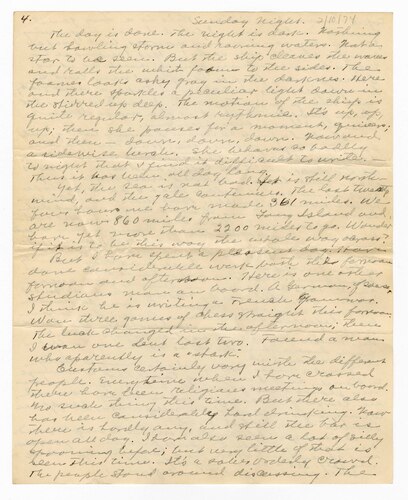 4.
Sunday Night. 2/10/74
The day is done. The night is dark. Nothing
but howling storm and roaring waters. Not a
star to be seen. But the ship cleaves the waves
and rolls the white foam to the sides. The
foam looks ashy gray in the darkness. Here
and there sparkles a peculiar light down in
the stirred up deep. The motion of the ship is
quite regular, almost rythmic. It's up, up,
up; then she pauses for a moment, quivers;
and then — down, down, down. Now and
a sidewise lurch. She behaves so badly
to-night that I find it difficult to write.
Thus it has been all day long.
Yet, the sea is not bad. It is still north-
wind, and the gale continues. The last twenty
four hours we have made 361 miles. We
are now 860 miles from Long Island and
have yet more than 2200 miles to go. Wonder
if it is to be this way the whole way across.
But I have spent a pleasant day. Have
done considerable work both this forenoon
and afternoon. There is one other
studious man on board. A German, of course,
I think, he is writing a French Grammar.
Won three games of chess straight this forenoon.
The luck changed in the afternoon, then
I won one but lost two. Found a man
who apparently is a "shark."
Customs certainly vary with the different
people. Every time when I have crossed
there have been religious meetings on board.
No such thing this time. But there also
has been considerable hard drinking. Now
there is hardly any, and still the bar is
open all day. I have also seen a lot of silly
spooning before; but very little of that is
seen this time. It's a sober, orderly crowd.
The people stand around discussing. The